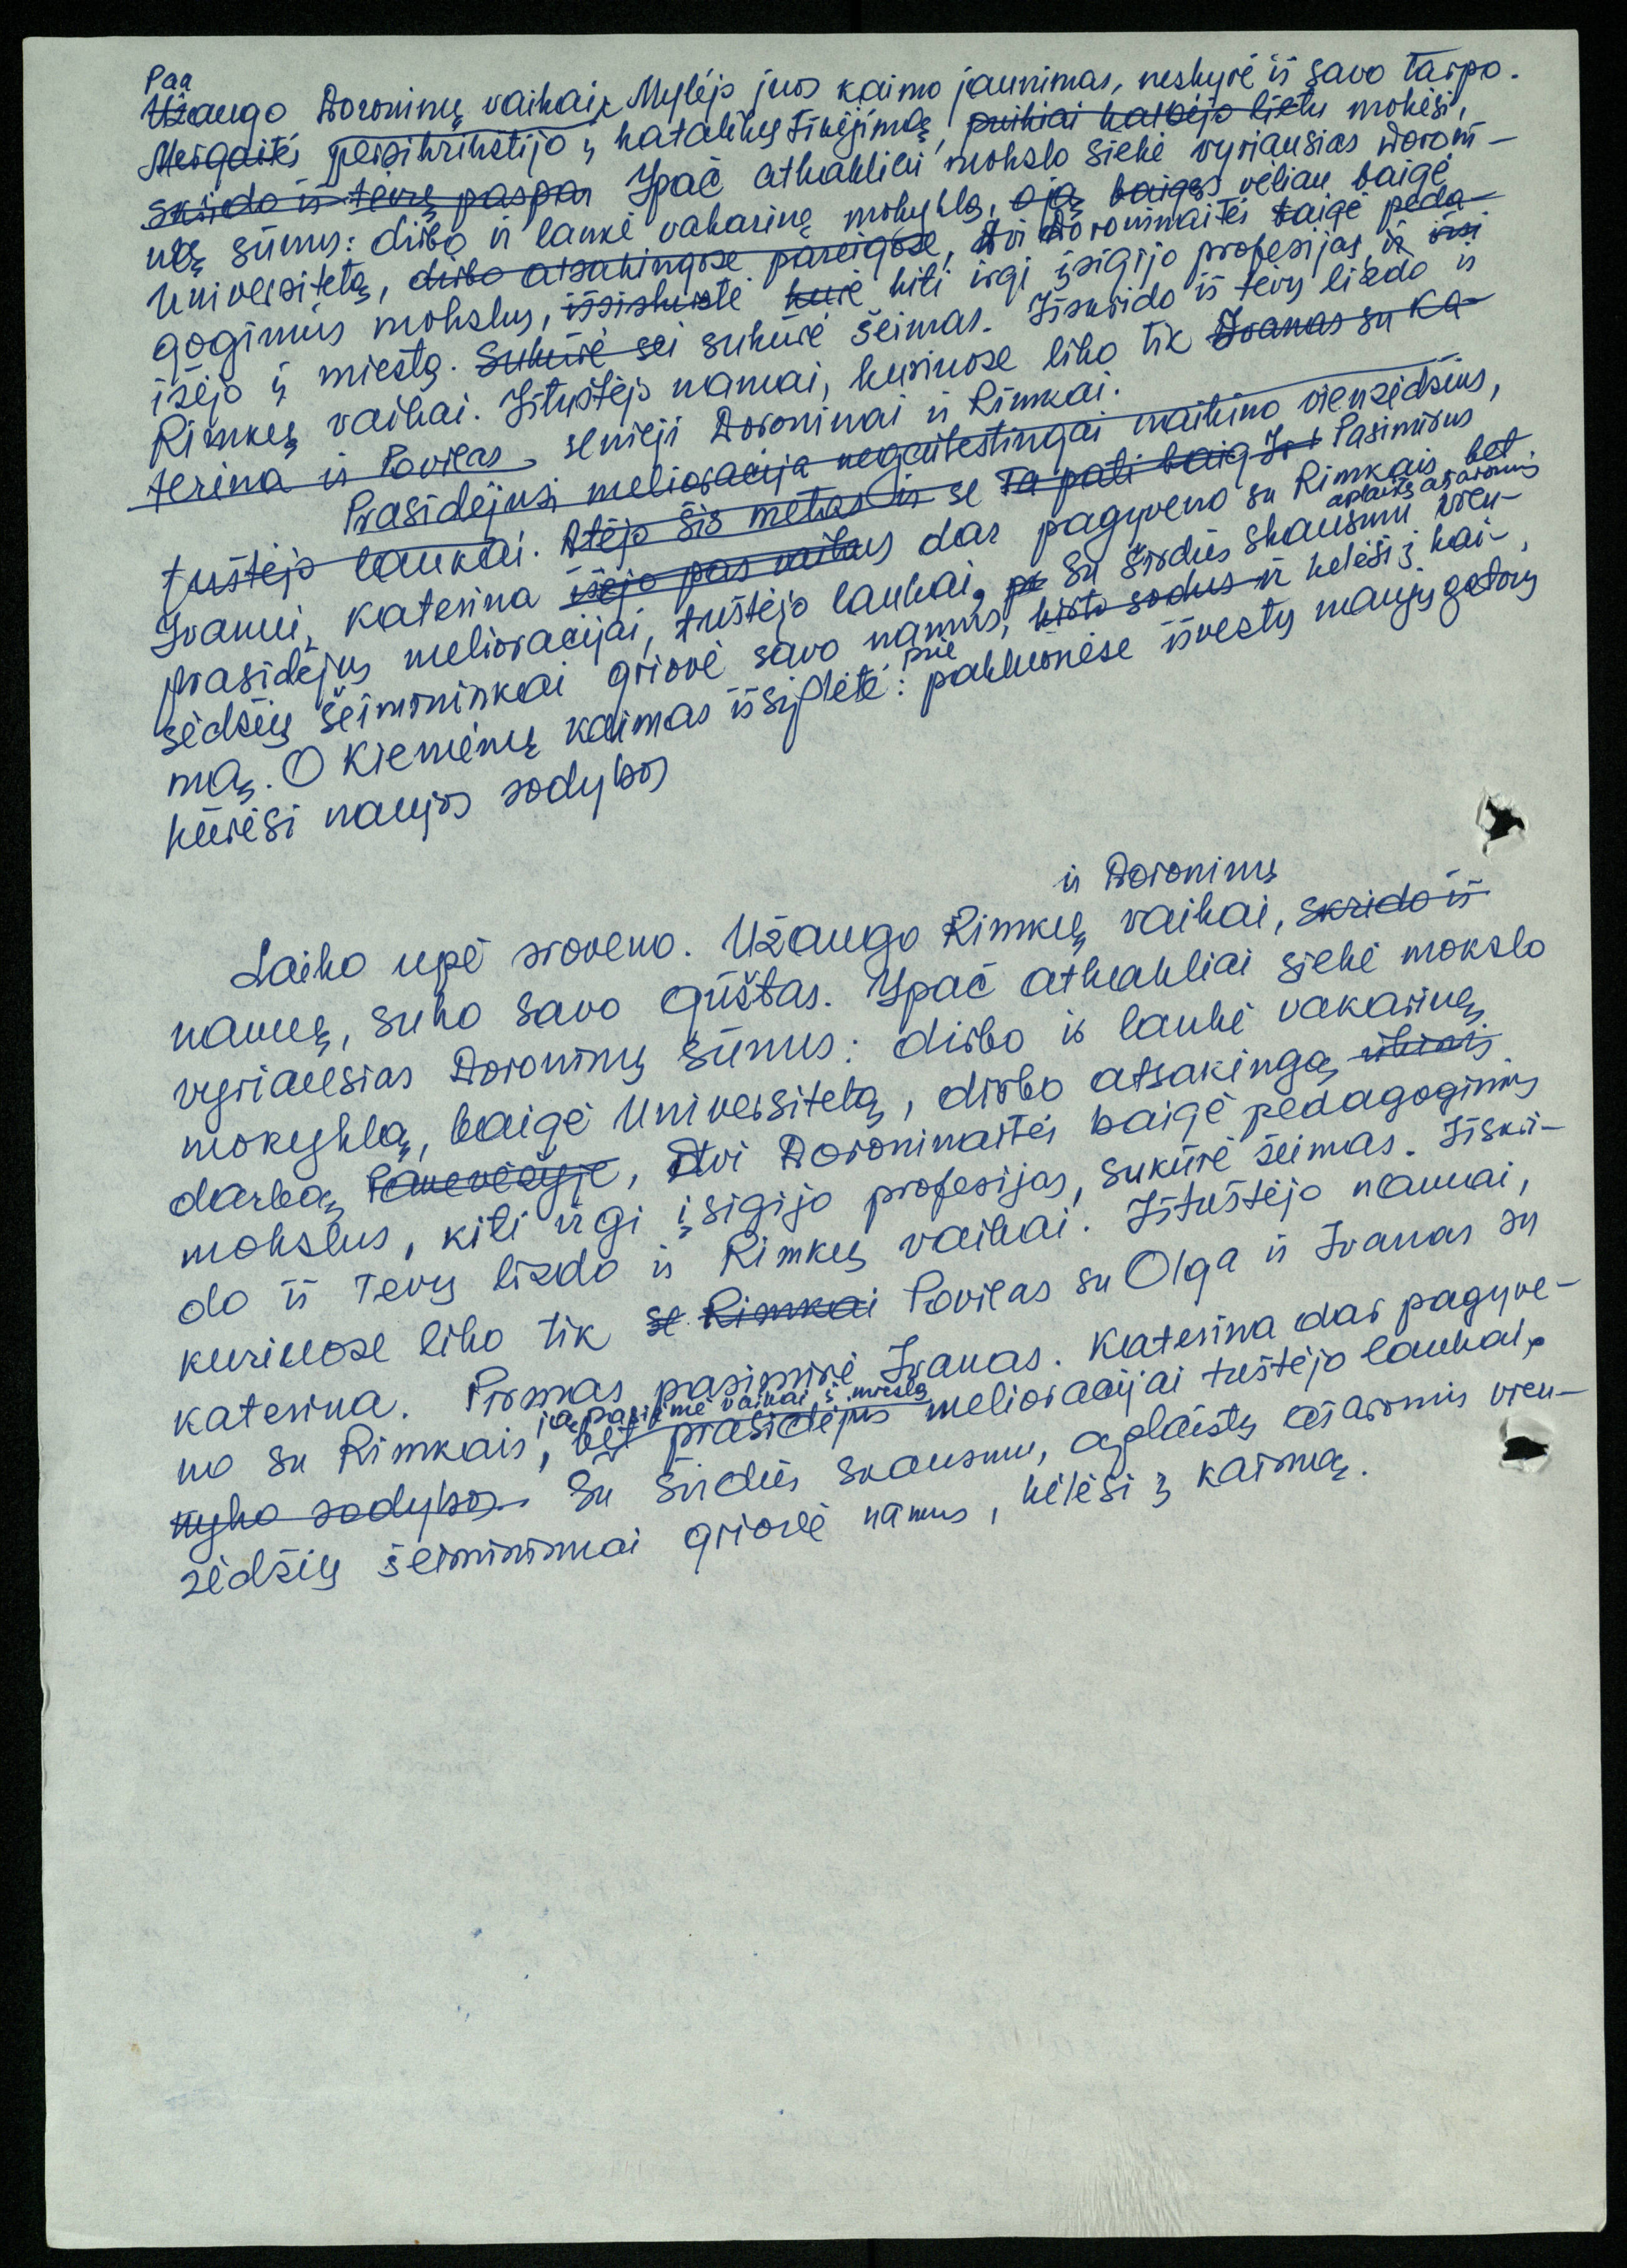 Paa
Užaugo Doroninų vaikai, Mylėjo juos kaimo jaunimas, neskyrė iš savo tarpo.
Mergaitės persikrikštijo į katalikų tikėjimą, puikiai kalbėjo lietu mokėsi,
skrido iš tėvų paspar Ypač atkakliai mokslo siekė vyriausias Doroni-
nų sūnus: dirbo ir lankė vakarinę mokyklą, o ją baigęs vėliau baigė
Universitetą, dirbo atsakingose pareigose, dvi Doroninaitės baigė peda-
goginius mokslus, išsiskirstė kurė kiti irgi įsigijo profesijas, ir
išėjo į miestą. Sukūrė sei sukūrė šeimas. Išskrido iš tėvų lizdo ir
Rimkų vaikai. Ištuštėjo namai, kuriuose liko tik Ivanas su Ka-
terina ir Povilas senieji Doroninai ir Rimkai.
Prasidėjusi melioracija negailestingai naikino viensėdžius,
tuštėjo laukai. Atėjo šis metas ir se Ta pati baig Iv Pasimirus
Ivanui, Katerina išėjo pas vaikus dar pagyveno su Rimkais, bet
prasidėjus melioracijai, tuštėjo laukai, su širdies skausmu aplaistę ašaromis vien-
sėdžių šeimininkai griovė savo namus, kirto sodus ir kėlėsi į kai-
mą. O Kiemėnų kaimas išsiplėtė: prie pakluonėse išvestų naujų gatvių
kūrėsi naujos sodybos
ir Doroninų
Laiko upė sroveno. Užaugo Rimkų vaikai, skrido iš
namų, suko savo gūštas. Ypač atkakliai siekė mokslo
vyriausias Doroninų sūnus: dirbo ir lankė vakarinę
mokyklą, baigė Universitetą, dirbo atsakingą
darbą Panevėžyje, dvi Doroninaitės baigė pedagoginius
mokslus, kiti irgi įsigijo profesijas, sukūrė šeimas. Išskri-
do iš tėvų lizdo ir Rimkų vaikai. Ištuštėjo namai,
kuriuose liko tik se Rimkai Povilas su Olga ir Ivanas su
Katerina. Pirmas pasimirė Ivanas. Katerina dar pagyve-
ją pasiėmė vaikai į miestą
no su Rimkais, bet prasidėjus melioracijai tuštėjo laukai,
nyko sodybos Su širdies skausmu, aplaistę ašaromis vien-
sėdžių šeimininkai griovė namus, kėlėsi į kaimą.